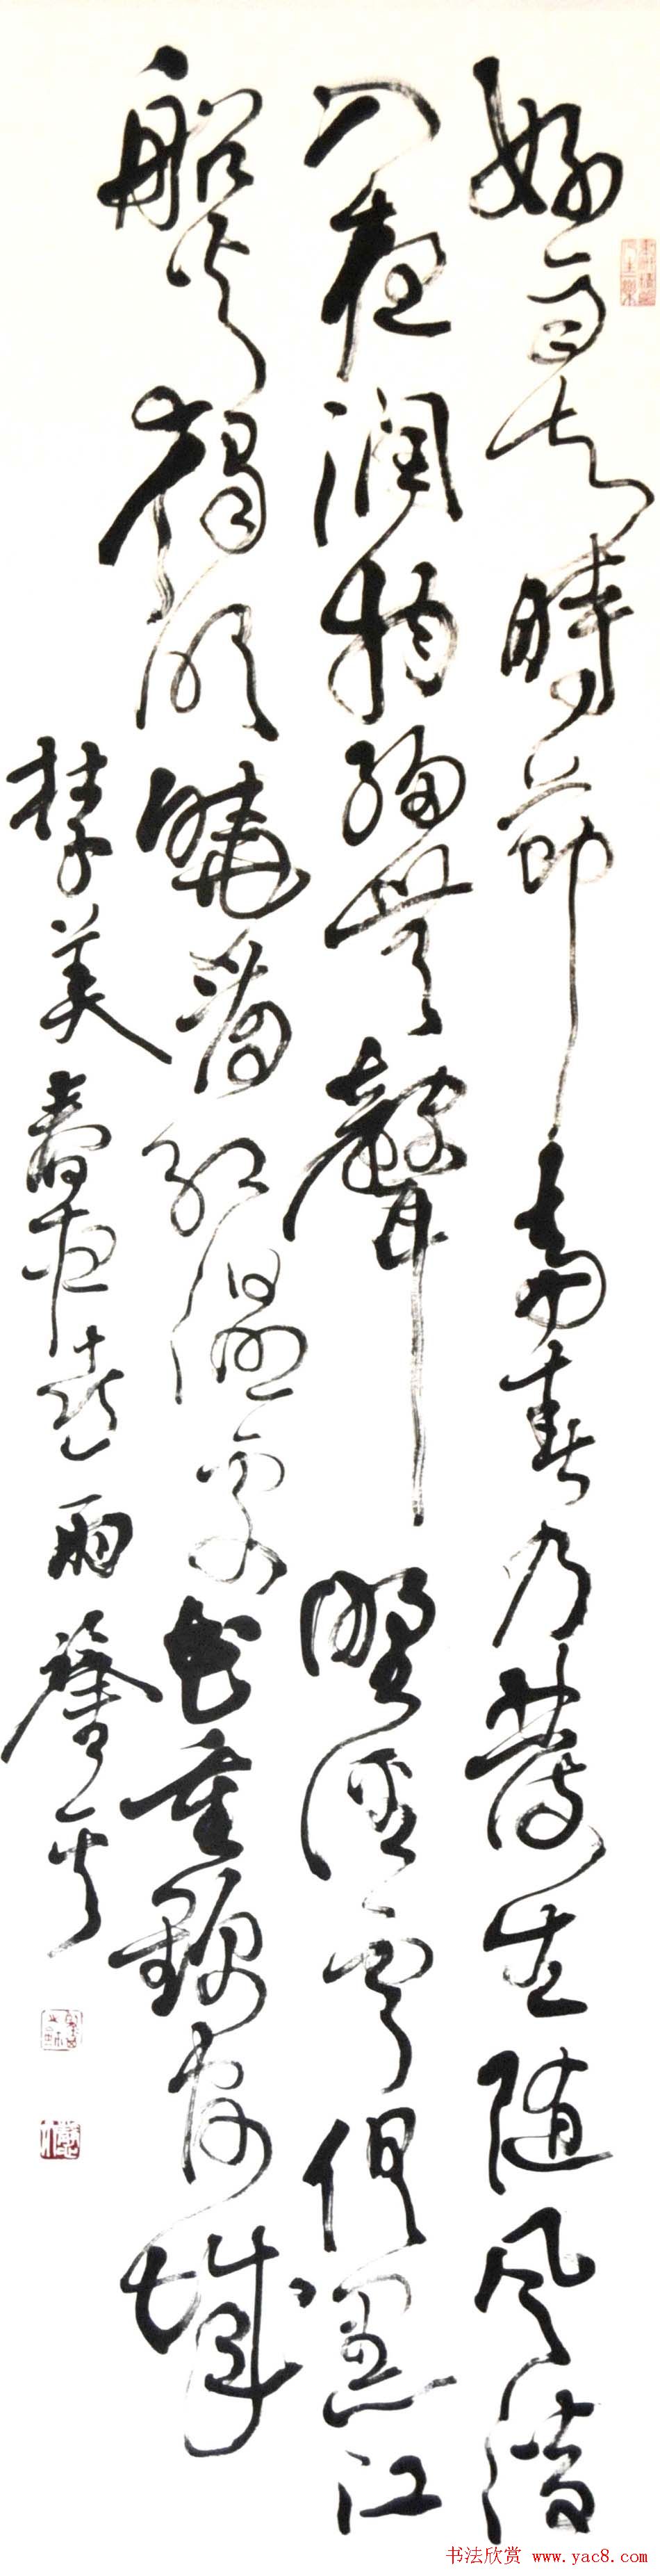 好雨知時節當春乃發生随風潛
入夜润物細無聲野徑雲俱黑江
船火獨明曉看紅濕處花重錦官城
杜子美春夜喜雨
书法欣赏 www.yac8.com